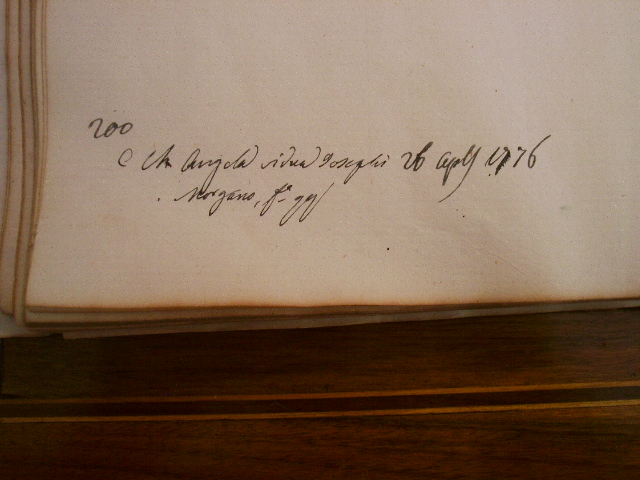 200
Angela vidua Josephi 26 1776
Morgano, fº 99